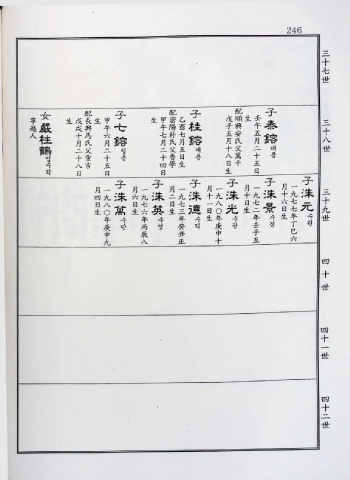 246
三十七世
三十八世
子泰鎔태용
壬午五月二十五日
生
配順興安氏父萬千
戊子五月十八日生
子桂鎔계용
乙酉七月五日生
配密陽朴氏父魯學
甲午七月二十四日
生
子七鎔칠용
甲午六月二十五日
生
配長興馬氏父重吉
戊戌十月二十八日
生
女嚴柱鶴엄주학
寧越人
三十九世
子洙元수원
一九七七年丁巳六
月十六日生
子洙景수경
一九七二年壬子五
月十日生
子洙光수광
一九八〇年庚申十
月十一日生
子洙德수덕
一九七三年癸丑正
月二日生
子洙英수영
一九七六年丙辰八
月六日生
子洙萬수만
一九八〇年庚申九
月四日生
四十世
四十一世
四十二世